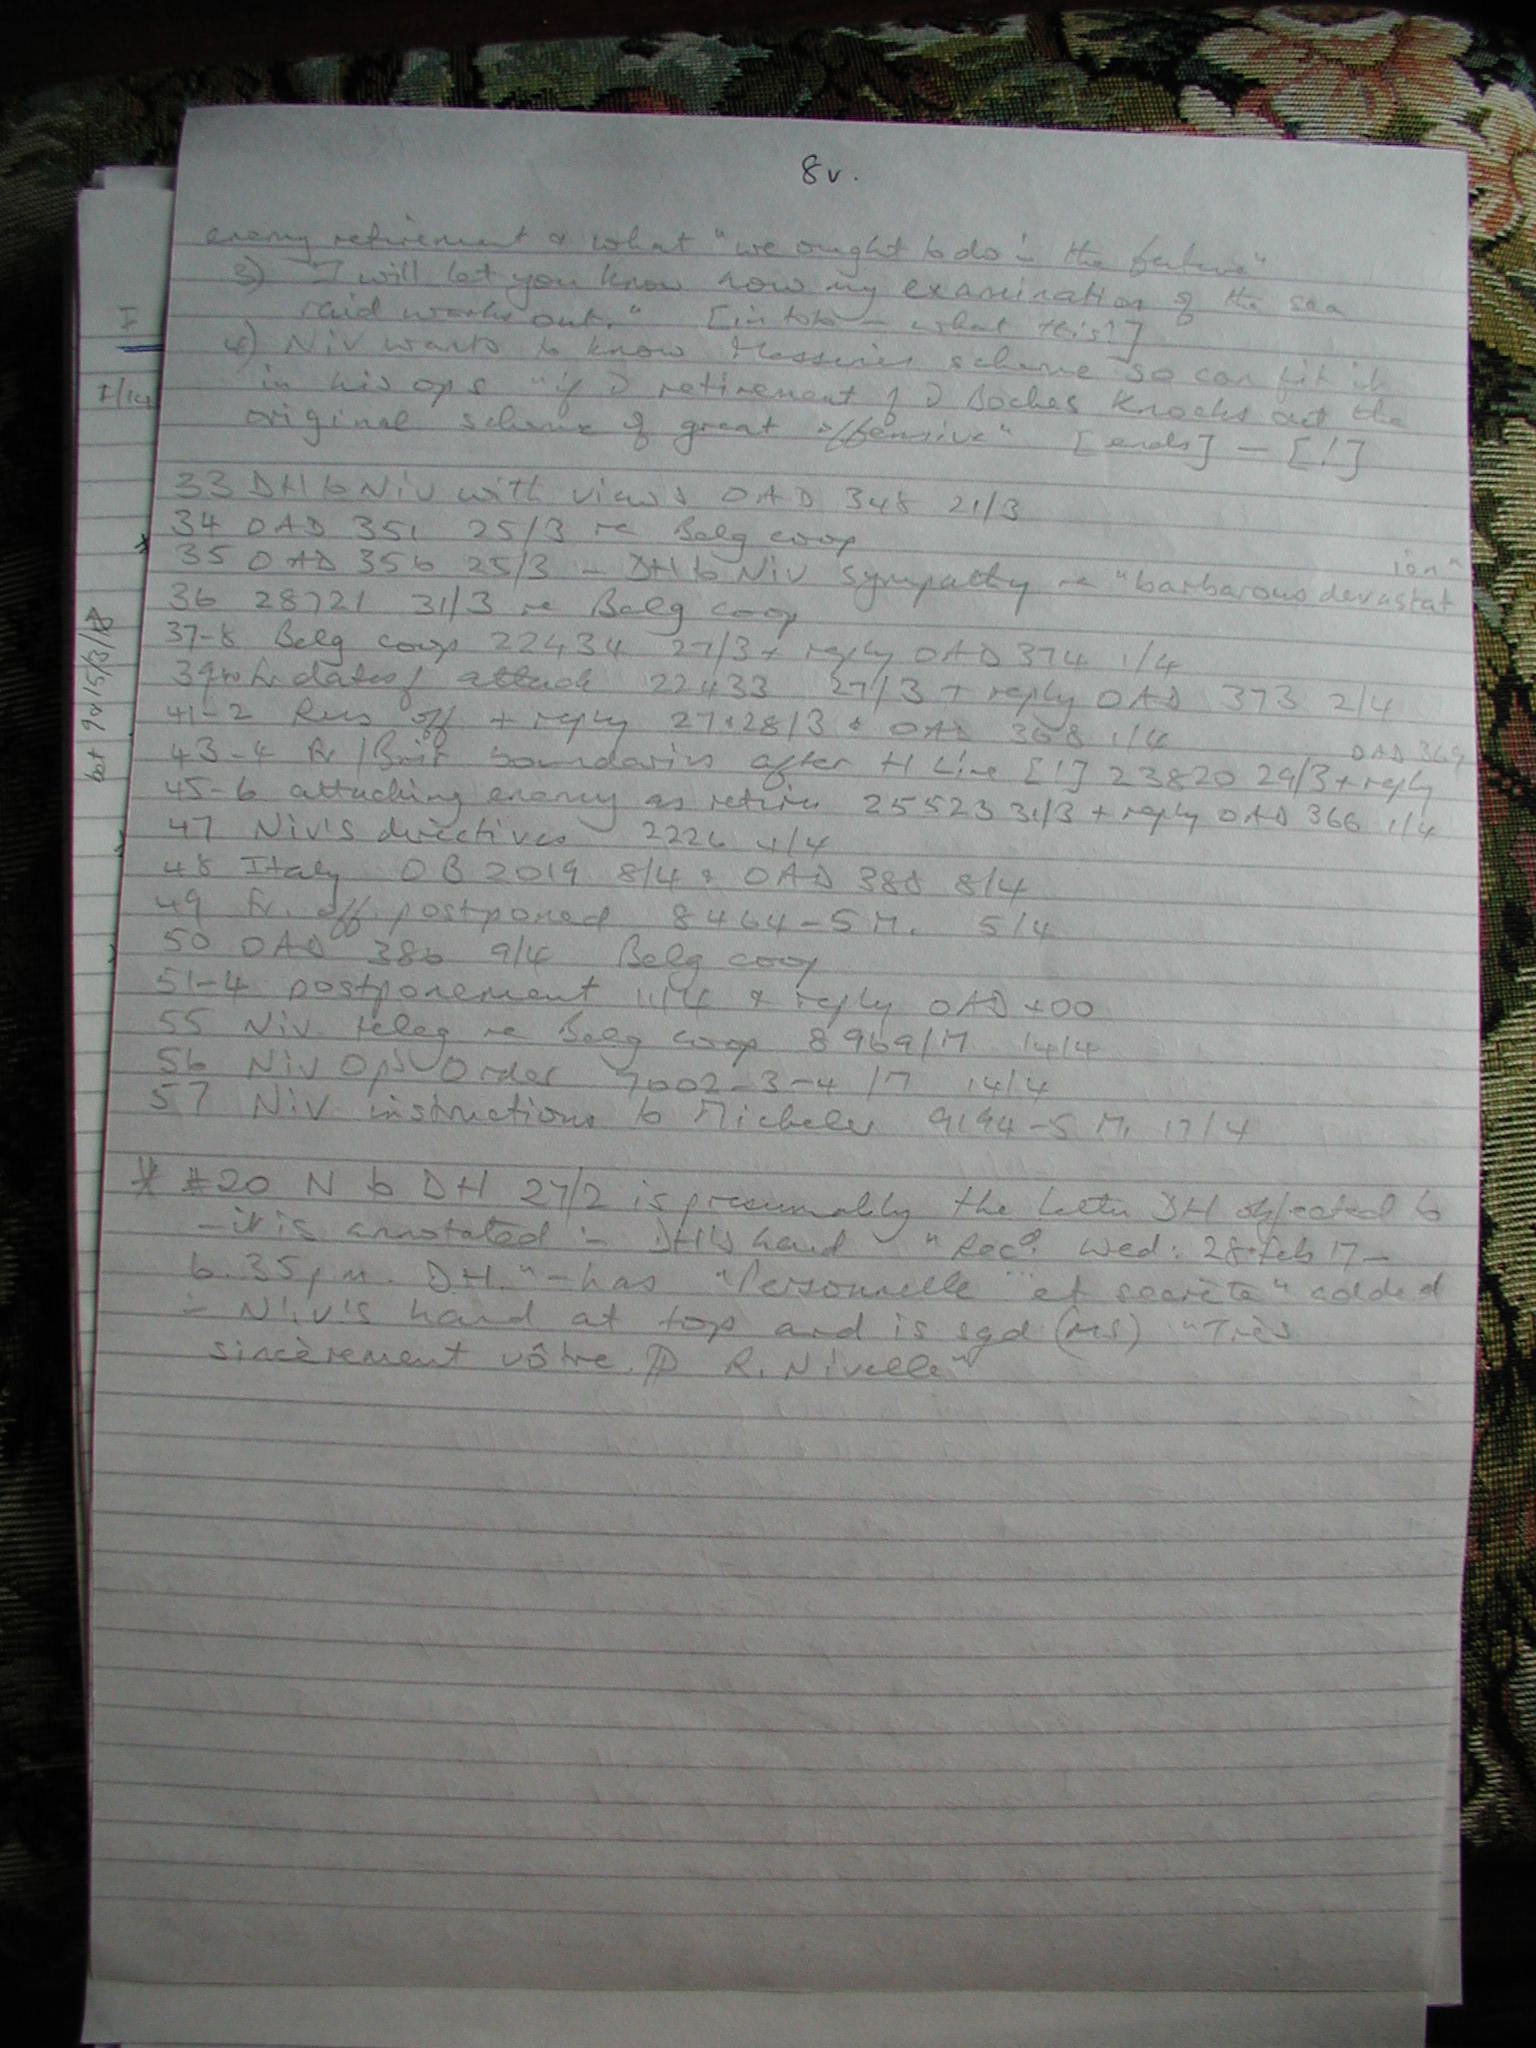 8v.
enemy retirement & what "we ought to do in the future"
3) "I will let you know how my examination of the sea
raid works out." [in toto – what this?]
4) Niv wants to know Messines scheme so can fit it
in his ops "if D retirement of D Boches knocks out the
original scheme of great offensive" [ends] – [!]
33 DH to Niv with views OAD 348 21/3
34 OAD 351 25/3 re Belg coop
35 OAD 356 25/3 – DH to Niv sympathy re "barbarous devastat
ion"
36 28721 31/3 re Belg coop
37-8 Belg coop 22434 27/3 + reply OAD 374 1/4
dates of attack 22433 27/3 + reply OAD 373 2/4
41-2 Rus off + reply 27 & 28/3 & OAD 368 1/4
43-4 Fr/Brit boundaries after H Line [!] 23820 29/3 + reply
OAD 369
45-6 attacking enemy as retires 25523 31/3 + reply OAD 366 1/4
47 Niv's directives 2226 4/4
48 Italy OB 2019 8/4 & OAD 388 8/4
49 Fr. off. postponed 8464-5 M. 5/4
50 OAD 386 9/4 Belg coop
51-4 postponement 11/4 & reply OAD 400
55 Niv teleg re Belg coop 8969/M 14/4
56 Niv Ops Order 7002-3-4/M 14/4
57 Niv instructions to Micheler 9194-5 M. 17/4
* #20 N to DH 27/2 is presumably the letter DH objected to
– it is annotated in DH's hand "Recd. Wed: 28 Feb 17 –
6.35 p.m. DH." – has "Personnelle et secrète" added
in Niv's hand at top and is sgd (MS) "Très
sincèrement vôtre. R. Nivelle"
I
I/14